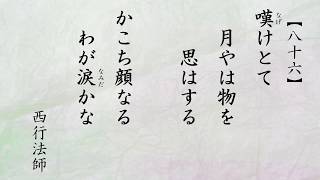 【八十六】
嘆けとて
なげ
月やは物を
思はする
かこち顔なる
わが涙かな
なみだ
西行法師